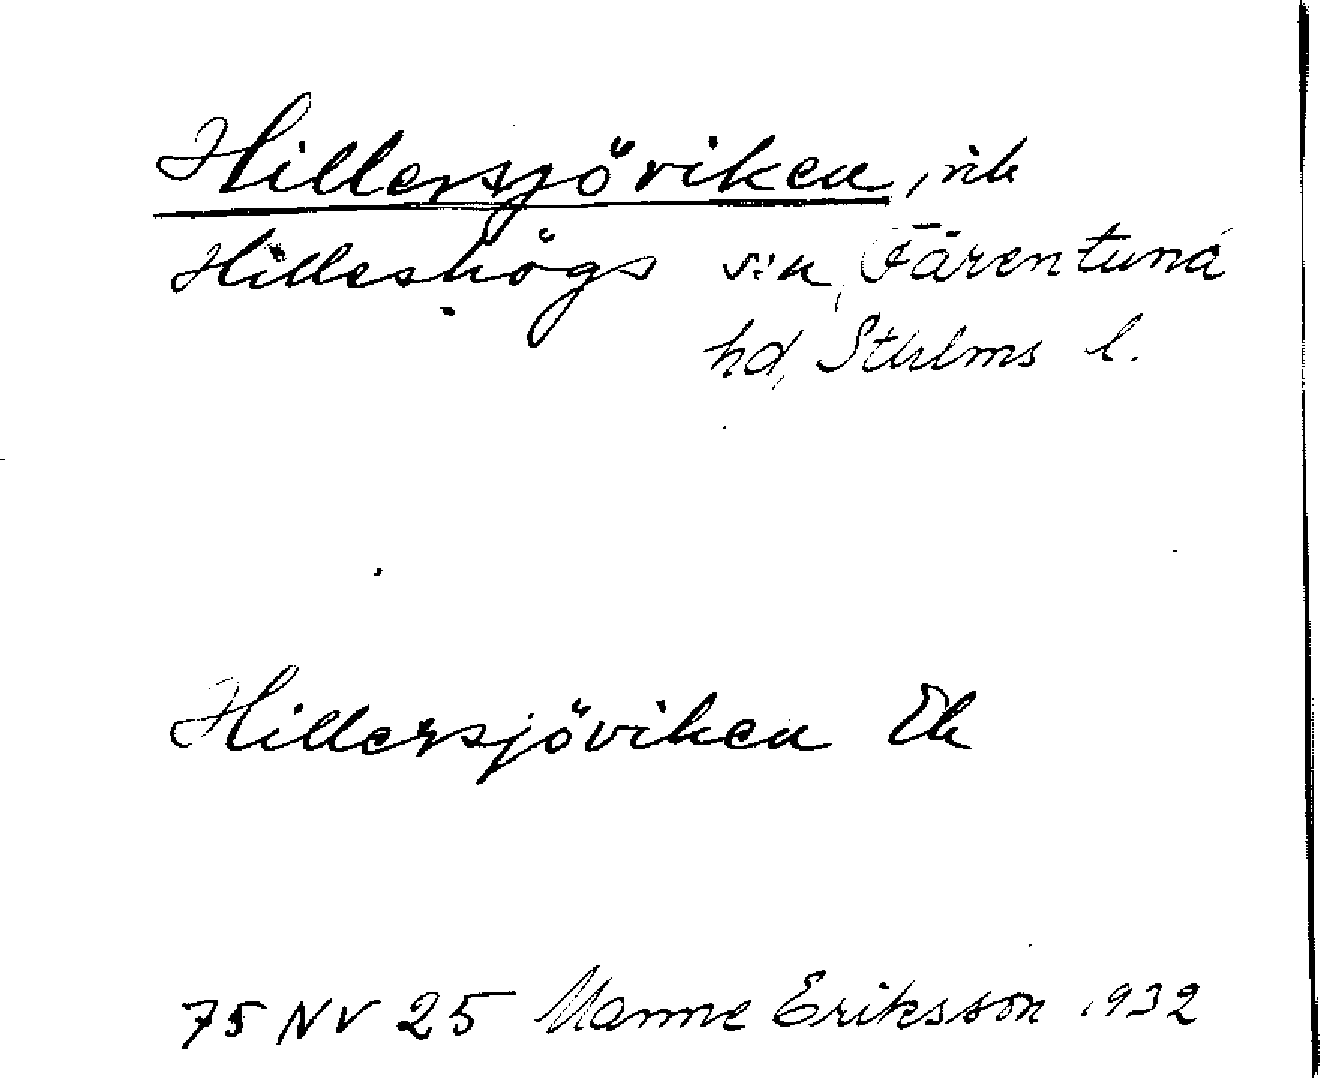 Hillersjöviken, vik
Hilleshögs s:n, Färentuna
hd, Sthlms l.
Hillersjöviken Ek
75 NV 25 Manne Eriksson 1932